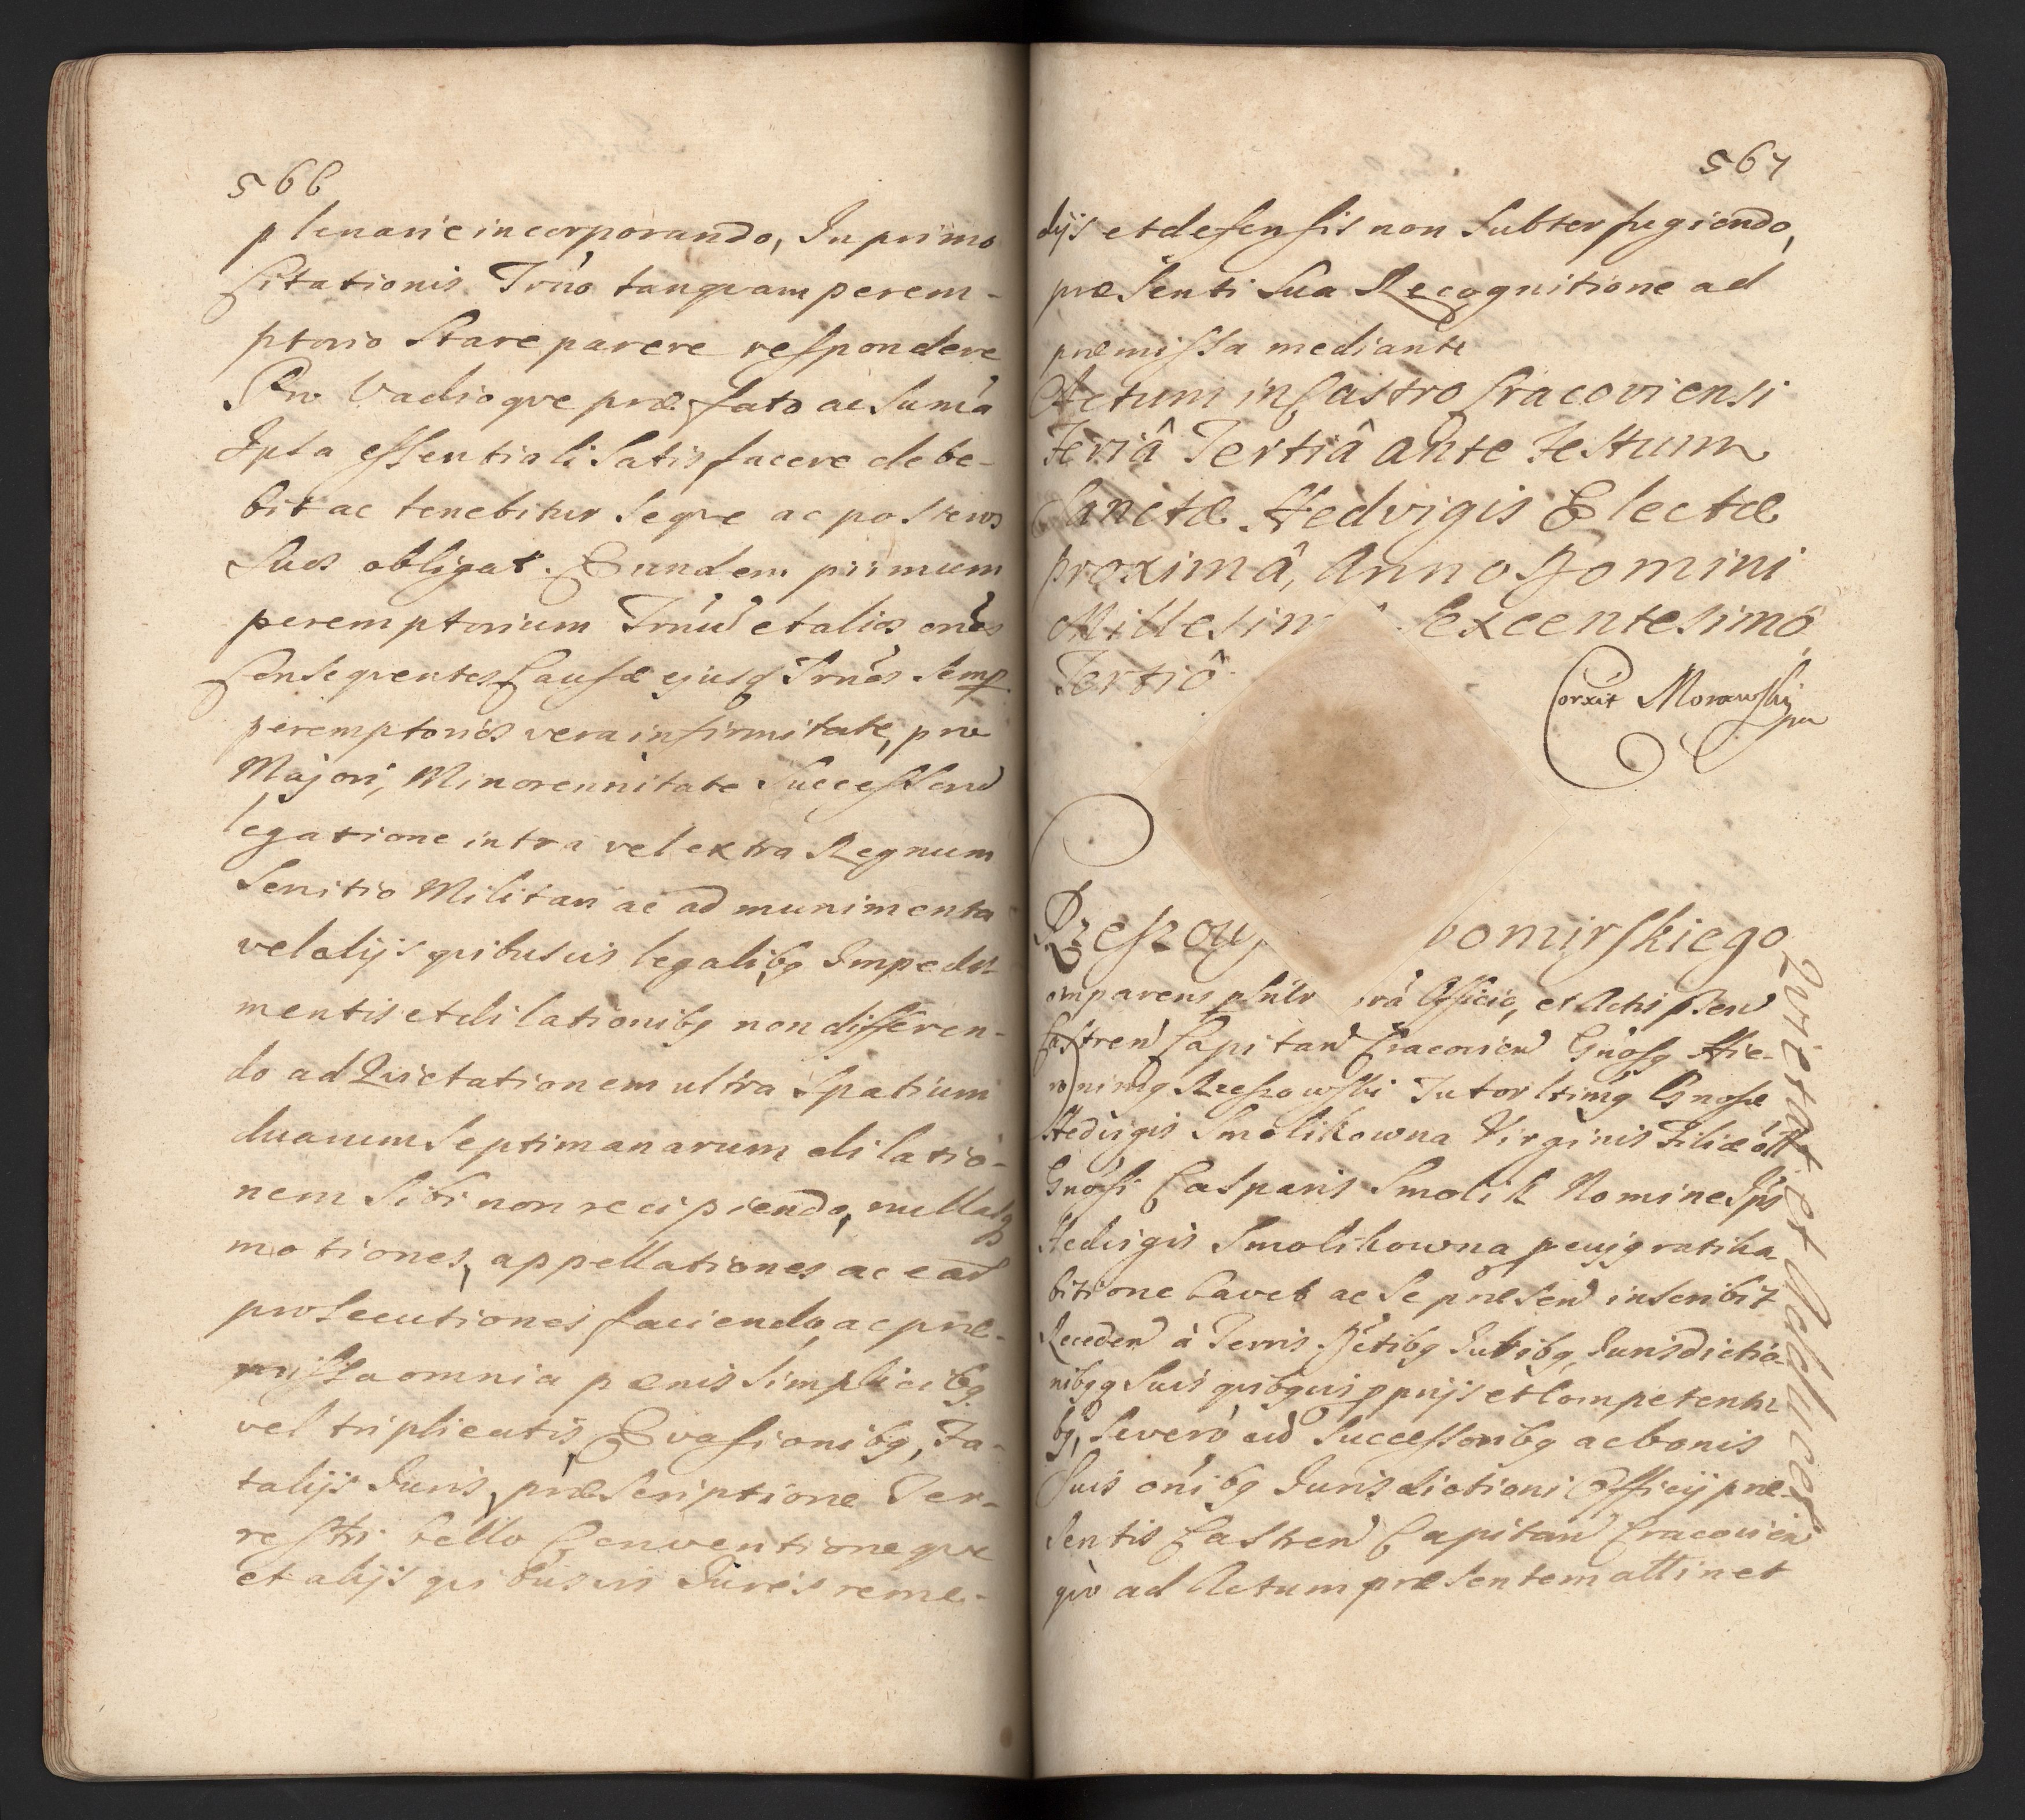 566
plenarie incorporando, In primo
Citationis Trńo tanquam perem-
ptorio Stare parere respondere
Pro Vadioque præfato ac Sum̃a
Ipsa essentiali Satisfacere debe-
bit ac tenebitur Seque ac posteros
Suos obligat. Eundem primum
peremptorium Trńu et alios oṅes
Consequentes Causæ ejusq Trńos Semp
peremptorios vera infirmitate, pro
Majori, Minorennitate Successorũ
legatione intra vel extra Regnum
Servitio Militari ac ad munimenta
vel alijs quibusvis legalibq Impedi-
mentis et dilationibq non differen-
do ad Quietationem ultra Spatium
duarum Septimanarum dilatio-
nem Sibi non recipiendo, nullasq
motiones, appellationes ac ead
prosecutiones faciendo, ac præ-
missa omnia pænis Simplicibq
vel triplicatis, Evasionibq, Fa-
talijs Juris, præscriptione Ter-
restri bello Conventioneque
et alijs quibusvis Juris reme-
567
dijs et defensis non Subterfugiendo,
præsenti Sua Recognitione ad
præmissa mediante
Actum in Castro Cracoviensi
Feriâ Tertiâ ante Festum
Sanctæ Hedvigis Electæ
proximâ, Anno Domini
Millesim Sexcentesimô
Tertiô
Corxit Morawski
mp
Rzeszow bomirskiego
omparens pńlr rà Officio, et Actis pñen
Castreñ Capitañ Cracovieñ Gńosq Hie-
ronimq Rzeszowski Tutor ltimq Gńosæ
Hedvigis Smolikowna Virginis Filiæ olì
Gńosi Casparis Smolik Nomine Ips
Hedvigis Smolikowna, p cujq ratiha-
bitione Cavet ac Se præseñ inscribit
Recedeñ à Terris Dctibq Jutibq, Jurisdictio-
nibqq Suis quibqvis pprijs et Competenti-
bq, Severò cũ Successoribq ac bonis
Suis oṅibq Jurisdictioni Officij præ-
sentis Castreñ Capitañ Cracovieñ
quò ad Actum præsentem attinet
Quietat et Adducet